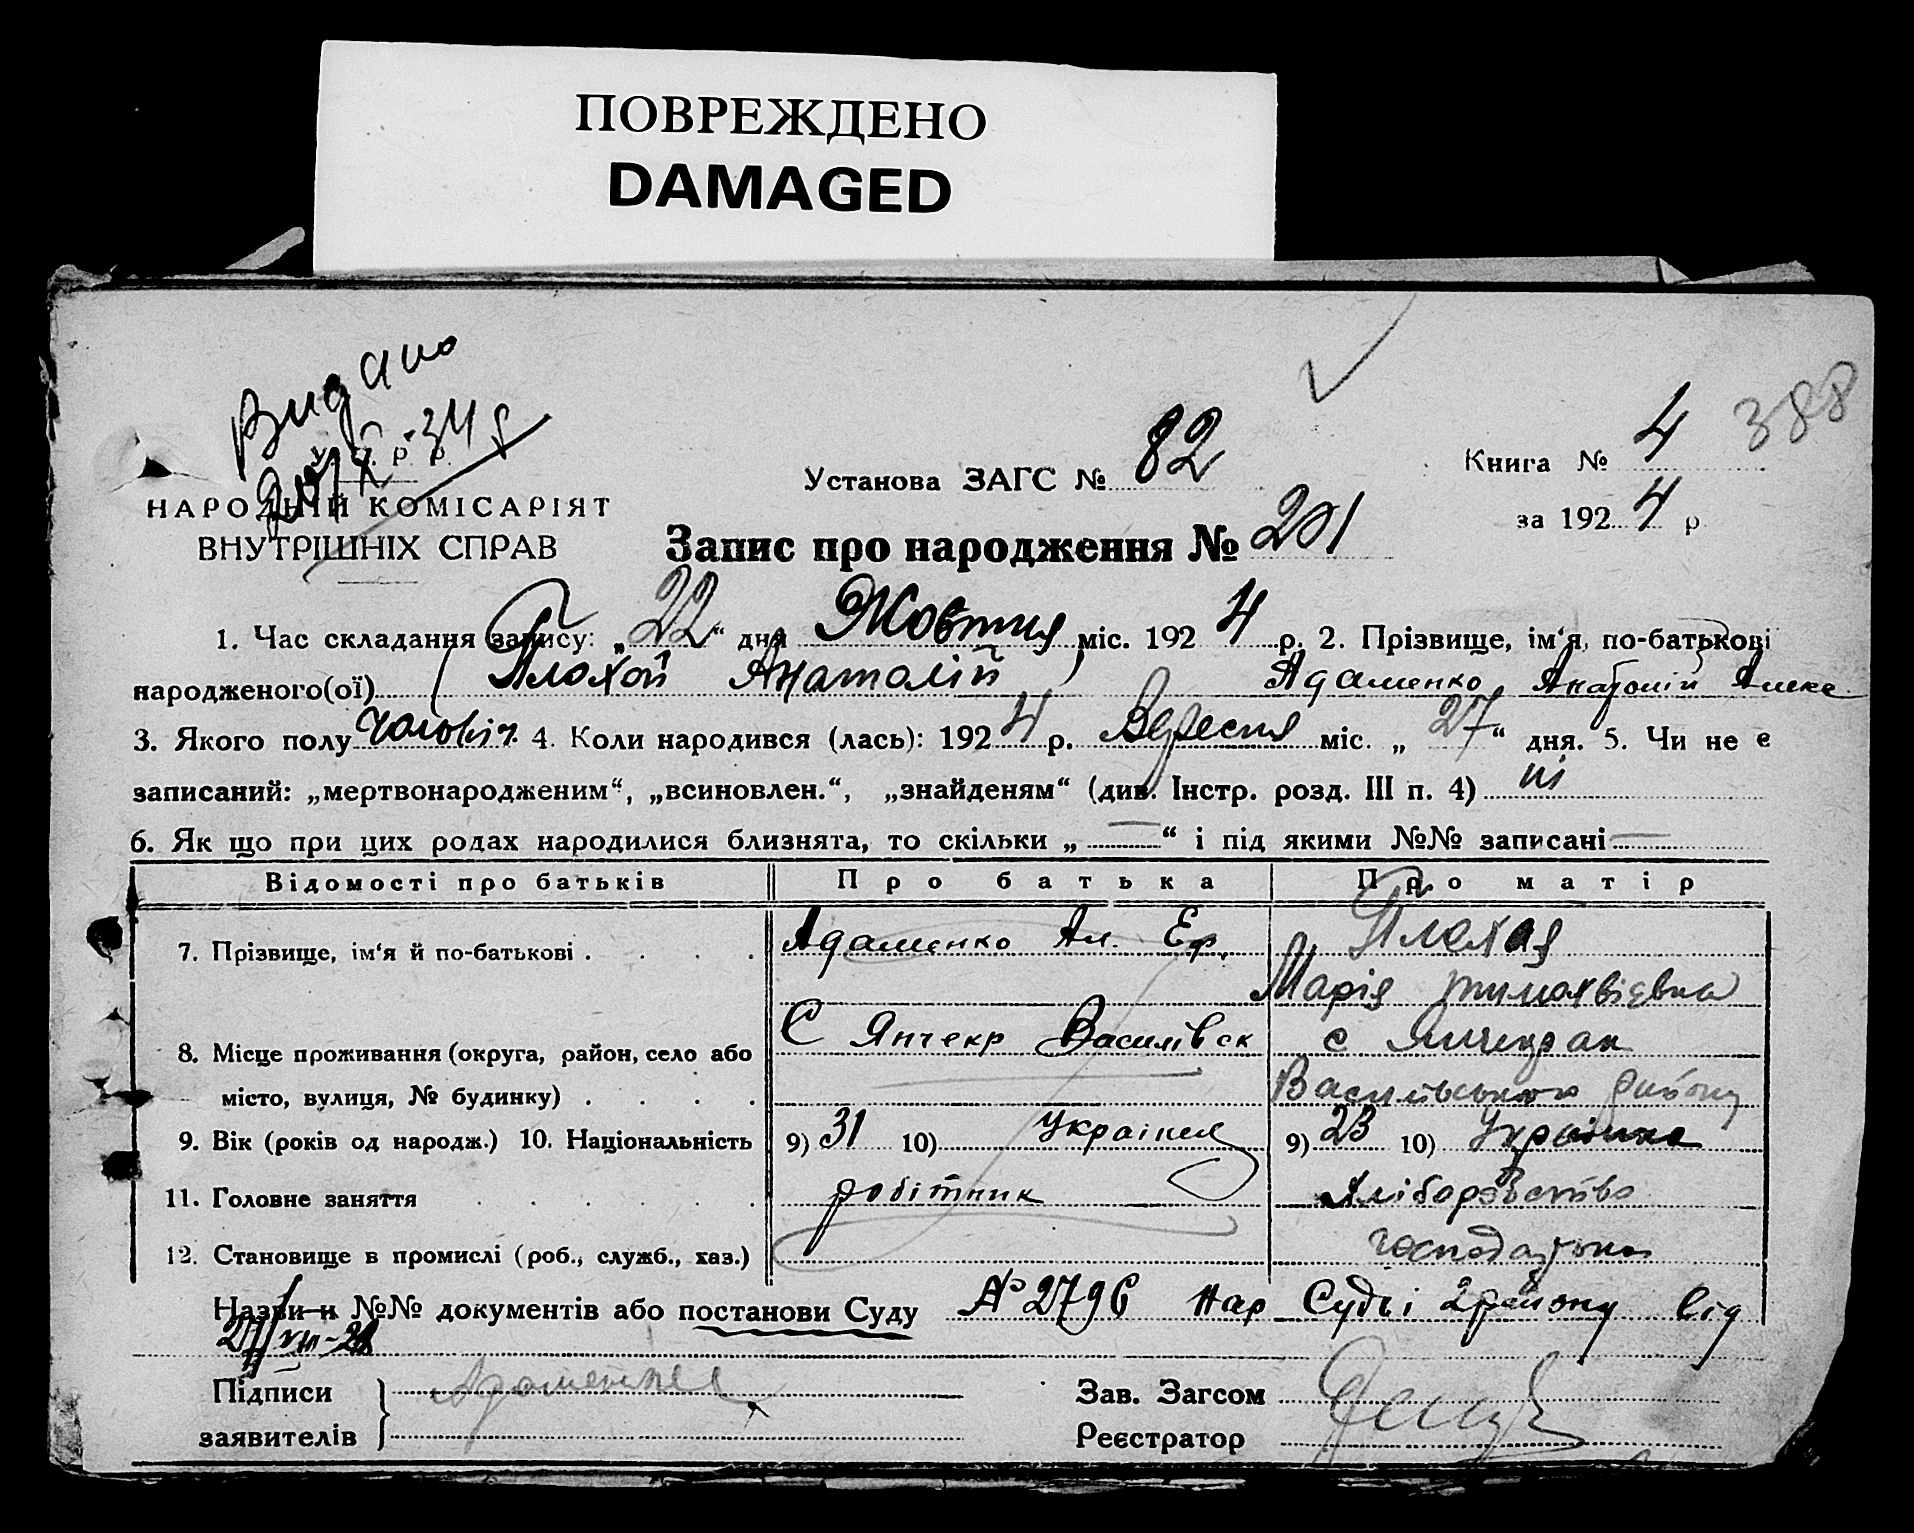 ПОВРЕЖДЕНО
DAMAGED
Видано
У. С. Р. Р.
НАРОДНІЙ КОМІСАРІЯТ
ВНУТРІШНІХ СПРАВ
Установа ЗАГС № 82
Книга № 4
388
за 1924 р.
Запис про народження № 201
1. Час складання запису: „22“ дня Жовтня міс. 1924 р. 2. Прізвище, ім'я, по-батькові
народженого(ої) (Плохой Анатолій) Адаменко Анатолій Алекс
3. Якого полу чоловіч. 4. Коли народився (лась): 1924 р. Вересня міс. „27“ дня. 5. Чи не є
записаний: „мертвонародженим“, „всиновлен.“, „знайденям“ (див. Інстр. розд. III п. 4) ні
6. Як що при цих родах народилися близнята, то скільки „—“ і під якими №№ записані —
Відомості про батьків Про батька Про матір
7. Прізвище, ім'я й по-батькові . . . . Адаменко Ал. Еф. Плохая
Марія Тимохвієвна
8. Місце проживання (округа, район, село або С Янчекр Василівск с Янчекрак
місто, вулиця, № будинку) . . . . Василівського району
9. Вік (років од народж.) 10. Національність 9) 31 10) Українец 9) 23 10) Українка
11. Головне заняття . . . . . робітник хліборобство
12. Становище в промислі (роб., служб., хаз.) господарка
Назви и №№ документів або постанови Суду № 2796 Нар Судьі 2 району від
Підписи
заявителів
Адаменко
Зав. Загсом
Реєстратор